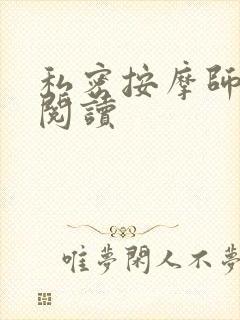 私密按摩師
閱讀
唯夢閑人不夢